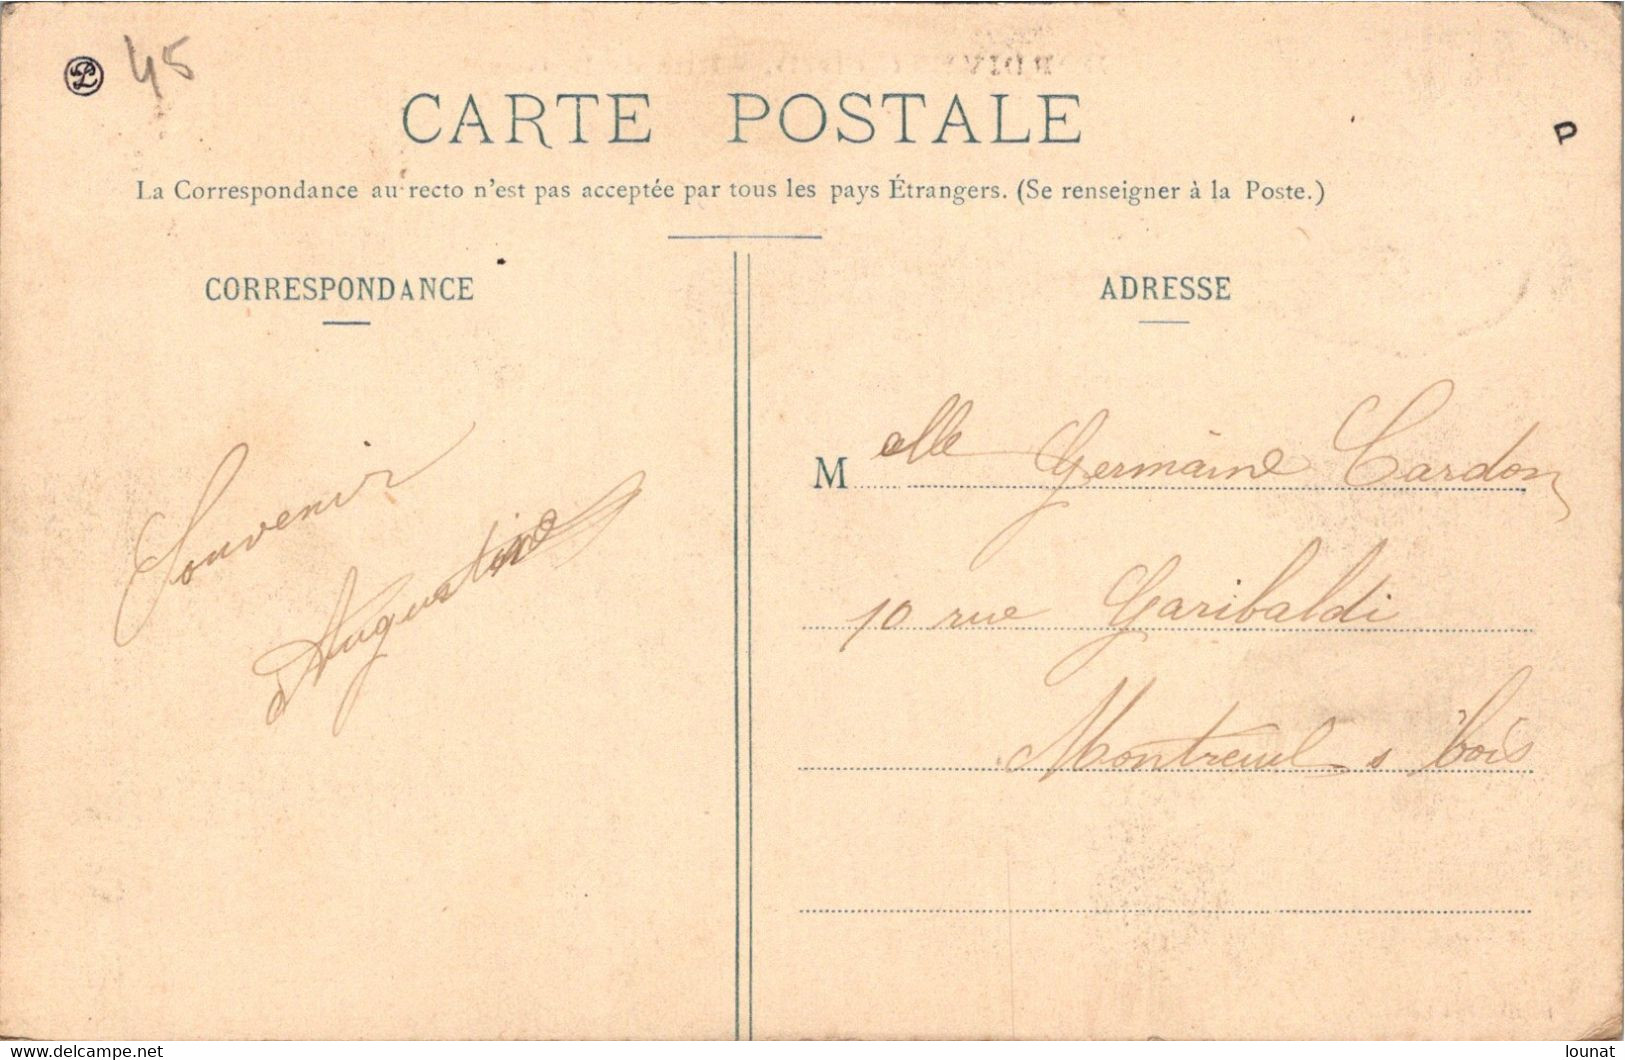 45
CARTE POSTALE
La Correspondance au recto n'est pas acceptée par tous les pays Étrangers. (Se renseigner à la Poste.)
CORRESPONDANCE
Souvenir
Augustine
ADRESSE
Melle Germaine Cardon
10 rue Garibaldi
Montreuil s bois
www.delcampe.net
lounat